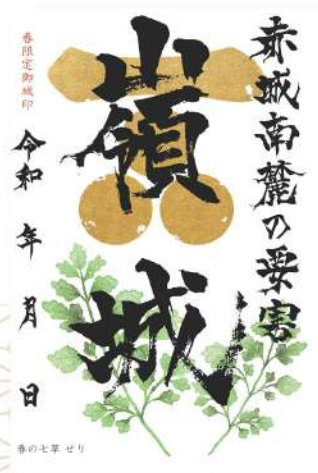 赤城南麓の要害
嶺城
春限定御城印
令和 年 月 日
春の七草 せり